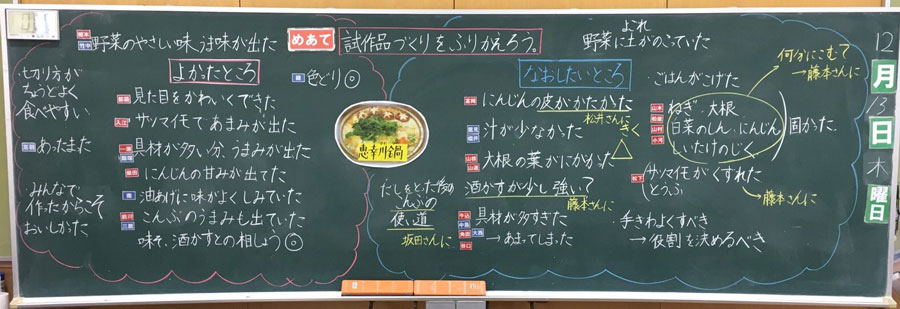 めあて 試作品づくりをふりかえろう。
12月13日木曜日
よかったところ
野菜のやさしい味、うま味が出た
切り方が
ちょうどよく
食べやすい
あったまた
みんなで
作ったからこそ
おいしかった
色どり◎
見た目をかわいくできた
入江
サツマイモであまみが出た
具材が多い分、うまみが出た
柴田
にんじんの甘みが出た
油あげに味がよくしみていた
こんぶのうまみも出ていた
味そ、酒かすとの相しょう◎
恵幸川鍋
なおしたいところ
よごれ
野菜に土がのこっていた
にんじんの皮がかたかった
松井さんにきく△
汁が少なかった
大根の葉がにがかった
酒かすが少し強い?
藤本さんに
だしをとった後の
こんぶの
使い道
坂田さんに
具材が多すぎた
→あまってしまった
ごはんがこげた
山本
山村
小河
ねぎ、大根
白菜のしん、にんじん
しいたけのじく
固かった
何分にこむ?
→藤本さんに
松下
サツマイモがくずれた
とうふ
→藤本さんに
手ぎわよくすべき
→役割を決めるべき